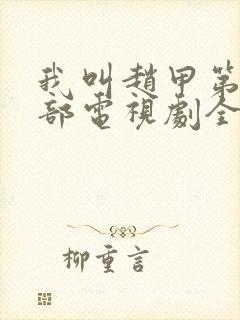 我叫趙甲第
部電視劇全
柳重言